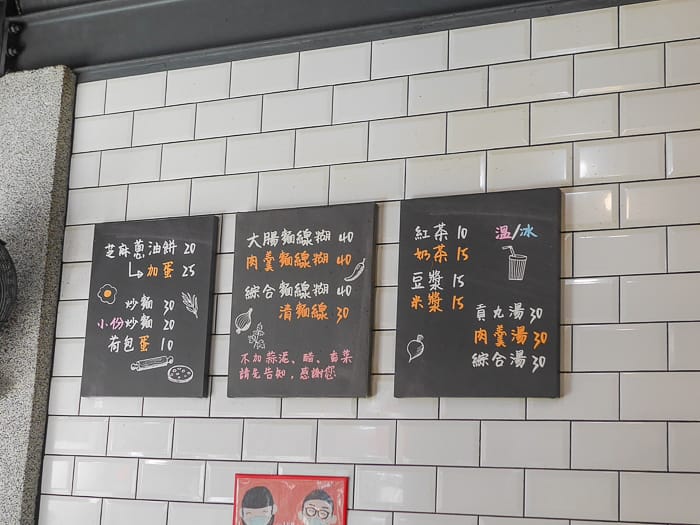 芝麻蔥油餅 20
加蛋 25
炒麵 30
小份炒麵 20
荷包蛋 10
大腸麵線糊 40
肉羹麵線糊 40
綜合麵線糊 40
清麵線 30
不加蒜泥、醋、香菜
請先告知，感謝您
紅茶 10 溫/冰
奶茶 15
豆漿 15
米漿 15
貢丸湯 30
肉羹湯 30
綜合湯 30